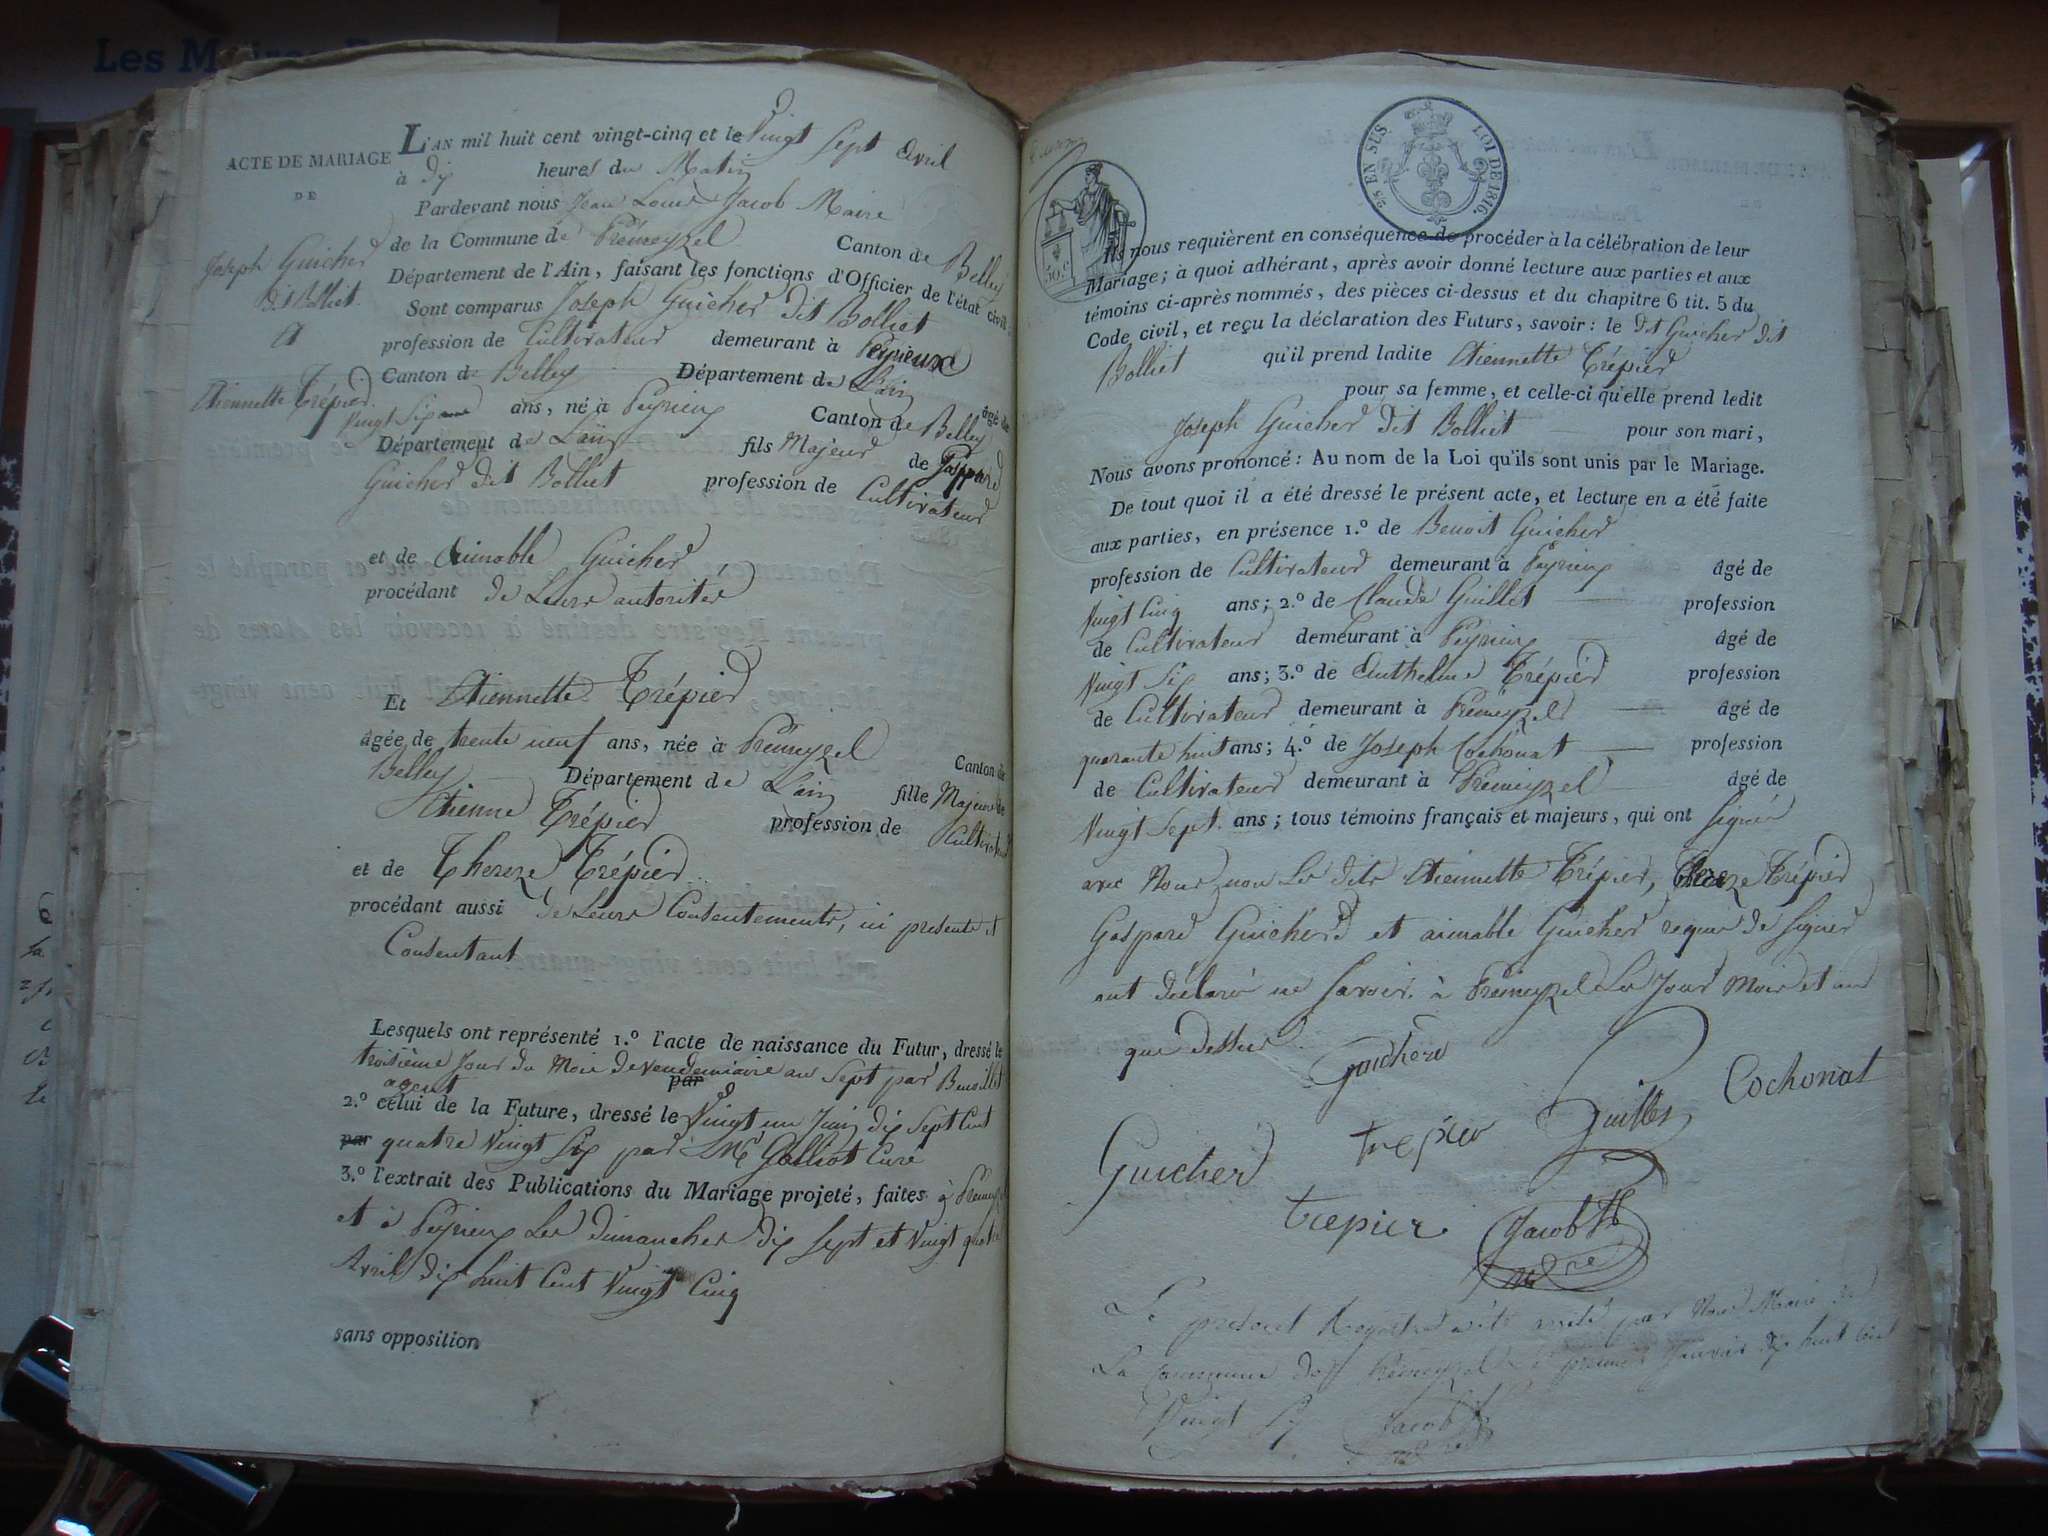 Les M
ACTE DE MARIAGE
DE
Joseph Guicherd
dit Bolliet
et
Etiennette Trépied
L'AN mil huit cent vingt-cinq et le Vingt Sept Avril
à dix heures du Matin
Pardevant nous Jean Louis Jacob Maire
de la Commune de Prémeyzel Canton de Belley
Département de l'Ain, faisant les fonctions d'Officier de l'état civil
Sont comparus Joseph Guicherd dit Bolliet
profession de Cultivateur demeurant à Peyrieux
Canton de Belley Département de L'ain âgé de
Vingt Six ans, né à Peyrieux Canton de Belley
Département de L'ain fils Majeur de Gaspard
Guicherd dit Bolliet profession de Cultivateur
et de Aimable Guicherd
procédant de Leurs autorités
Et Etiennette Trépied
âgée de trente neuf ans, née à Prémeyzel Canton de
Belley Département de L'ain fille Majeure de
Etienne Trépied profession de Cultivateur
et de Thereze Trépied
procédant aussi de Leurs Consentements, ici presents et
Consentant
Lesquels ont représenté 1.º l'acte de naissance du Futur, dressé le
troisième Jour du Mois de Vendemiaire an Sept par
agent par
2.º celui de la Future, dressé le Vingt un Juin dix Sept Cent
par quatre Vingt Six par Mr Golliot Curé
3.º l'extrait des Publications du Mariage projeté, faites à
et à Peyrieux Les dimanches dix Sept et Vingt quatre
Avril dix huit Cent Vingt Cinq
sans opposition
2es EN SUS LOI DE 1816.
50.c
Ils nous requièrent en conséquence de procéder à la célébration de leur
Mariage; à quoi adhérant, après avoir donné lecture aux parties et aux
témoins ci-après nommés, des pièces ci-dessus et du chapitre 6 tit. 5 du
Code civil, et reçu la déclaration des Futurs, savoir: le dit Guicherd dit
Bolliet qu'il prend ladite Etiennette Trépied
pour sa femme, et celle-ci qu'elle prend ledit
Joseph Guicherd dit Bolliet pour son mari,
Nous avons prononcé: Au nom de la Loi qu'ils sont unis par le Mariage.
De tout quoi il a été dressé le présent acte, et lecture en a été faite
aux parties, en présence 1.º de Benoit Guicherd
profession de Cultivateur demeurant à Peyrieux âgé de
Vingt Cinq ans; 2.º de Claude Guillet profession
de Cultivateur demeurant à Peyrieux âgé de
Vingt Six ans; 3.º de Anthelme Trépied profession
de Cultivateur demeurant à Prémeyzel âgé de
quarante huit ans; 4.º de Joseph Cochonat profession
de Cultivateur demeurant à Prémeyzel âgé de
Vingt Sept ans; tous témoins français et majeurs, qui ont Signés
avec Nous, non Les dits Etiennette Trépied, Thereze Trépied
Gaspard Guicherd et aimable Guicherd requis de Signer
ont déclaré ne Savoir. à Prémeyzel Les Jour Mois et an
que dessus
Guicherd
Guillet
Cochonat
trepier
Guicherd
trepier
Jacob
Le présent Registre a été par Nous Maire de
La Commune de Prémeyzel Le premier Janvier dix huit Cent
Vingt Six Jacob